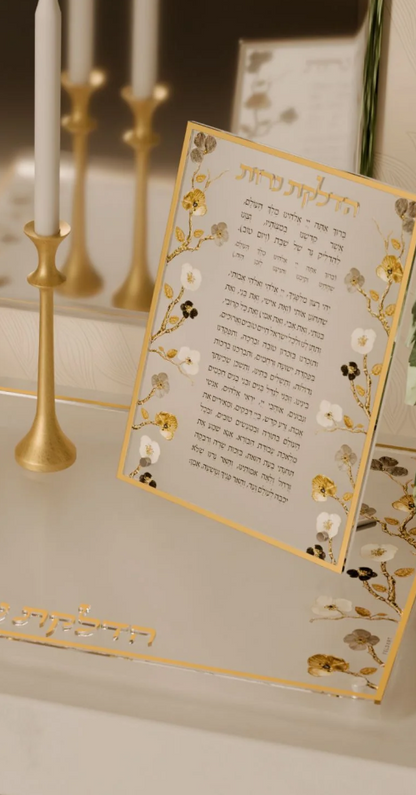 הדלקת נרות
ברוך אתה יי אלהינו מלך העולם,
אשר קדשנו במצותיו, וצונו
להדליק נר של שבת (ויום טוב).
יהי רצון מלפניך, יי אלהי ואלהי אבותי,
שתחונן אותי (ואת אישי, ואת בני, ואת
בנותי, ואת אבי, ואת אמי) ואת כל קרובי,
ותתן לנו ולכל ישראל חיים טובים וארוכים,
ותזכרנו בזכרון טובה וברכה, ותפקדנו
בפקדת ישועה ורחמים, ותברכנו ברכות
גדולות, ותשלים בתינו, ותשכן שכינתך
בינינו. וזכני לגדל בנים ובני בנים חכמים
ונבונים, אוהבי יי, יראי אלהים, אנשי
אמת, זרע קדש, ביי דבקים, ומאירים את
העולם בתורה ובמעשים טובים, ובכל
מלאכת עבודת הבורא. אנא שמע את
תחנתי בעת הזאת, בזכות שרה ורבקה
ורחל ולאה אמותינו, והאר נרנו שלא
יכבה לעולם ועד, והאר פניך ונושעה. אמן
הדלקת